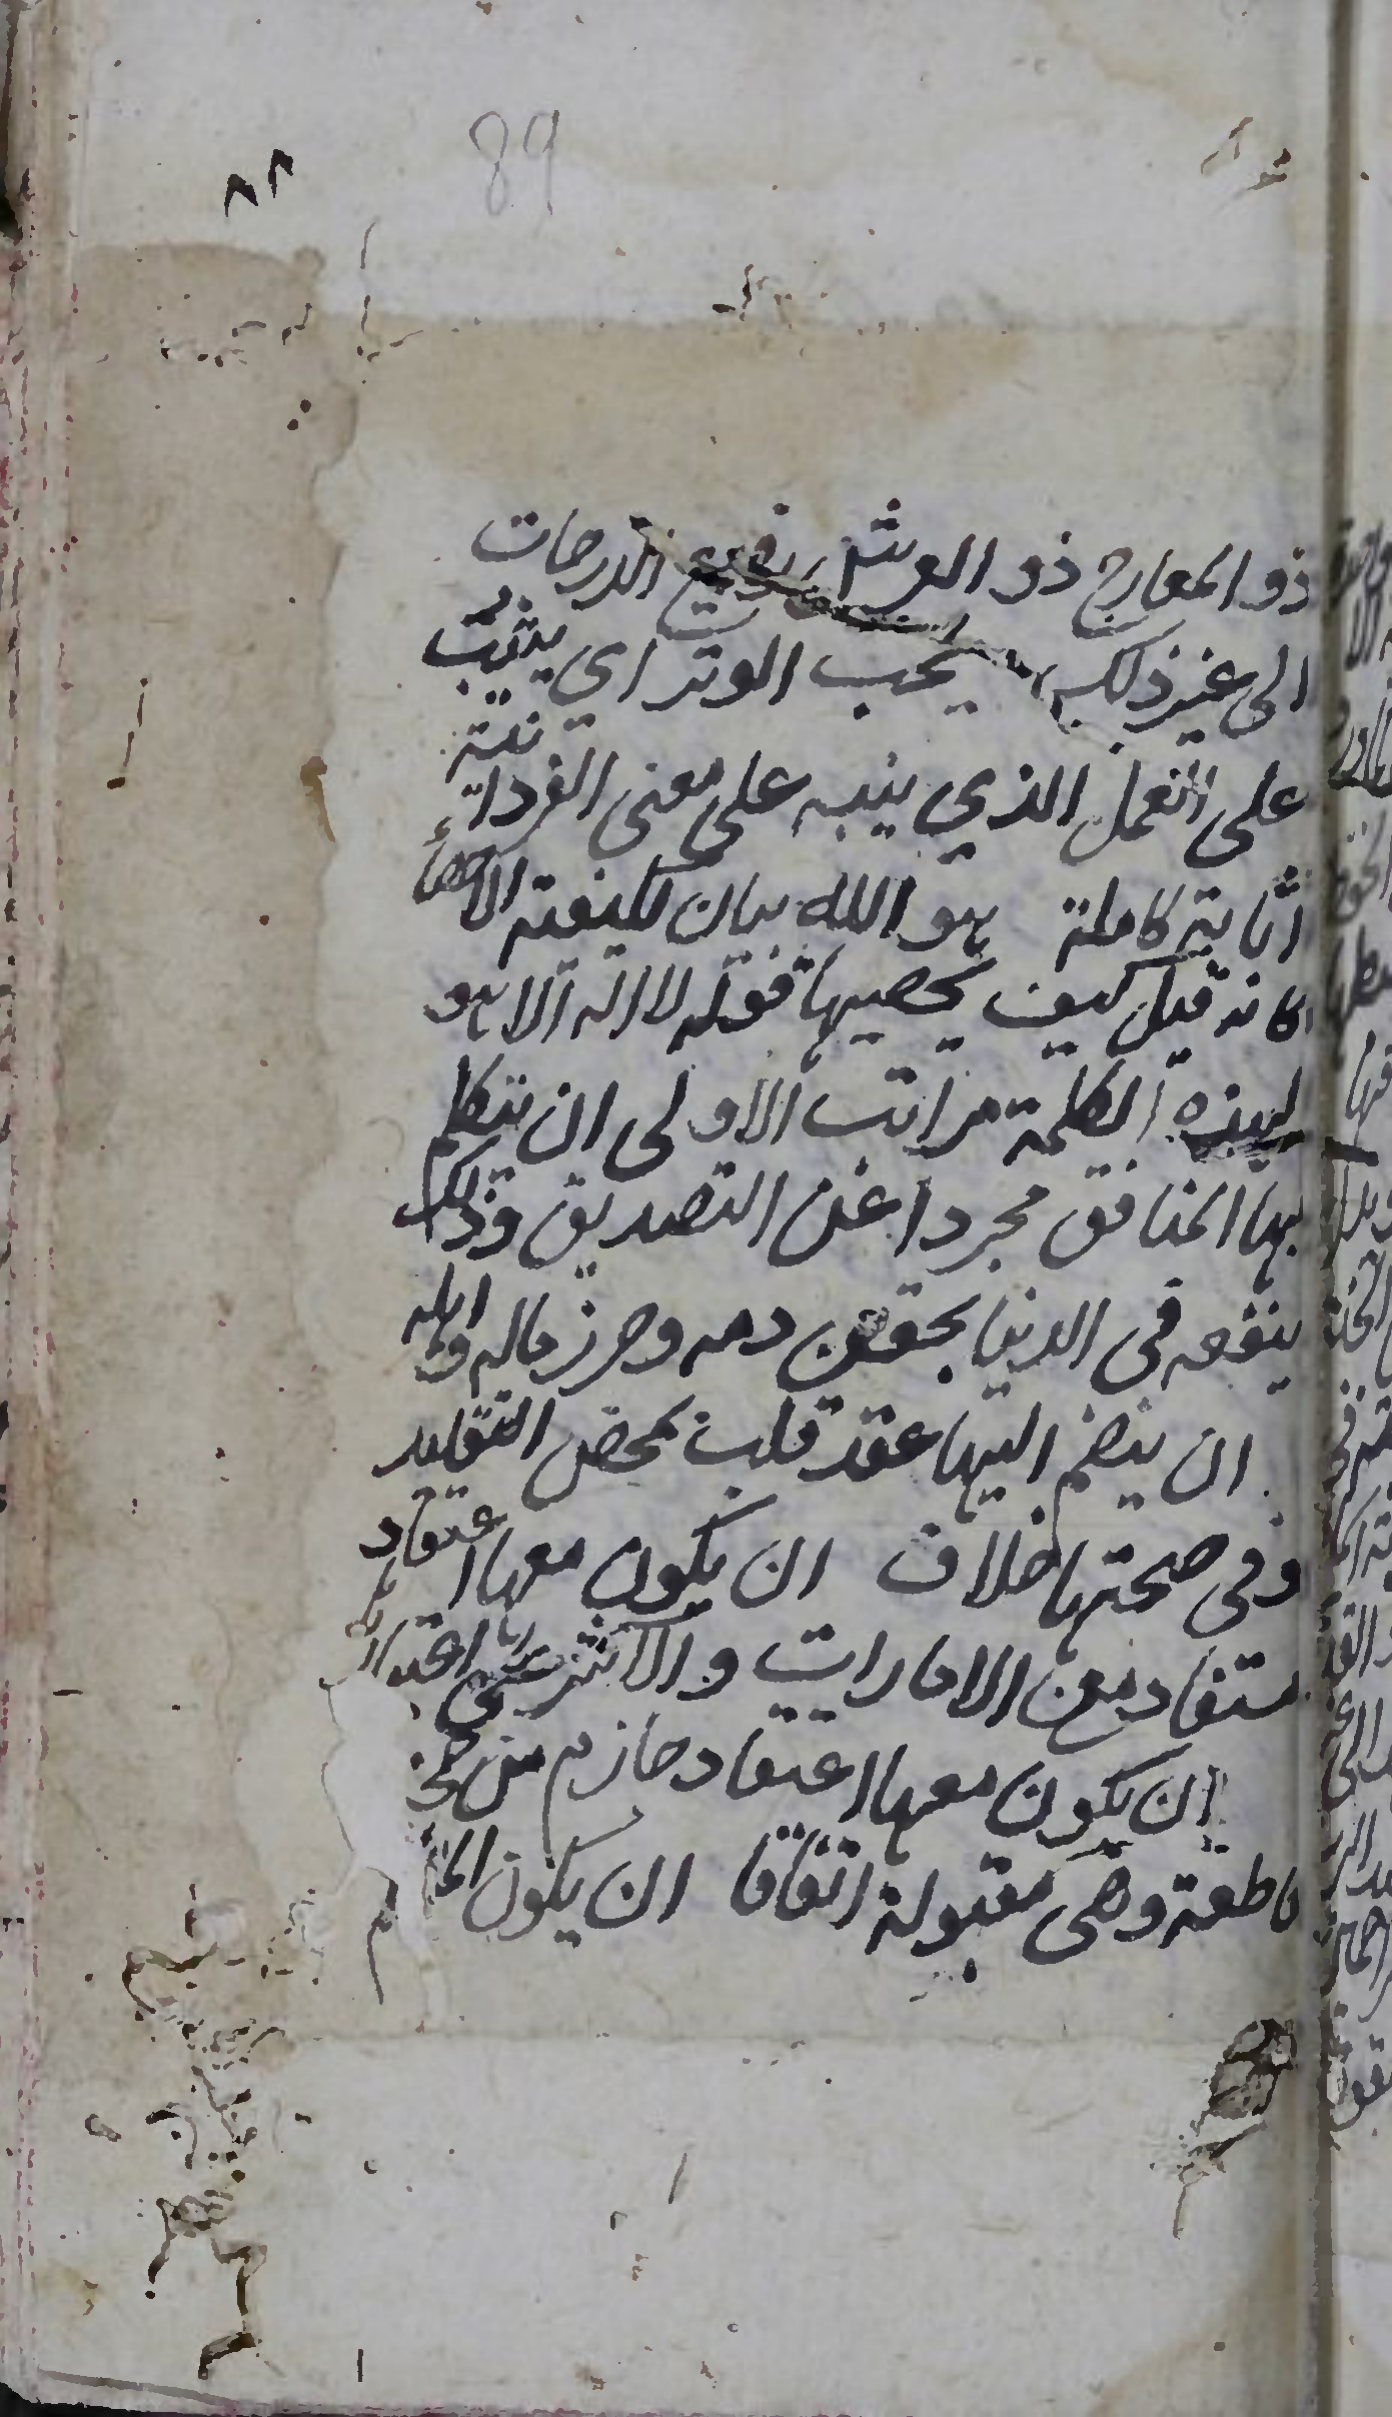 ٨٨
89
ذو المعارج ذو العرش رفيع الدرجات
الى غير ذلك يحب الوتر اي يثيب
على العمل الذي ينبه على معنى الفردانية
اثابة كاملة هو الله بيان لكيفية الاحصاء
كانه قيل كيف يحصيها فقوله لا اله الا هو
لهذه الكلمة مراتب الاولى ان يتكلم
بها المنافق مجردا عن التصديق وذلك
ينفعه في الدنيا بحقن دمه وحرز ماله واهله
ان ينضم اليها عقد قلب بمحض التقليد
وفي صحتها خلاف ان يكون معها اعتقاد
مستفاد من الامارات والاكثر على اعتبارها
ان يكون معها اعتقاد جازم من
قاطعة وهي مقبولة اتفاقا ان يكون